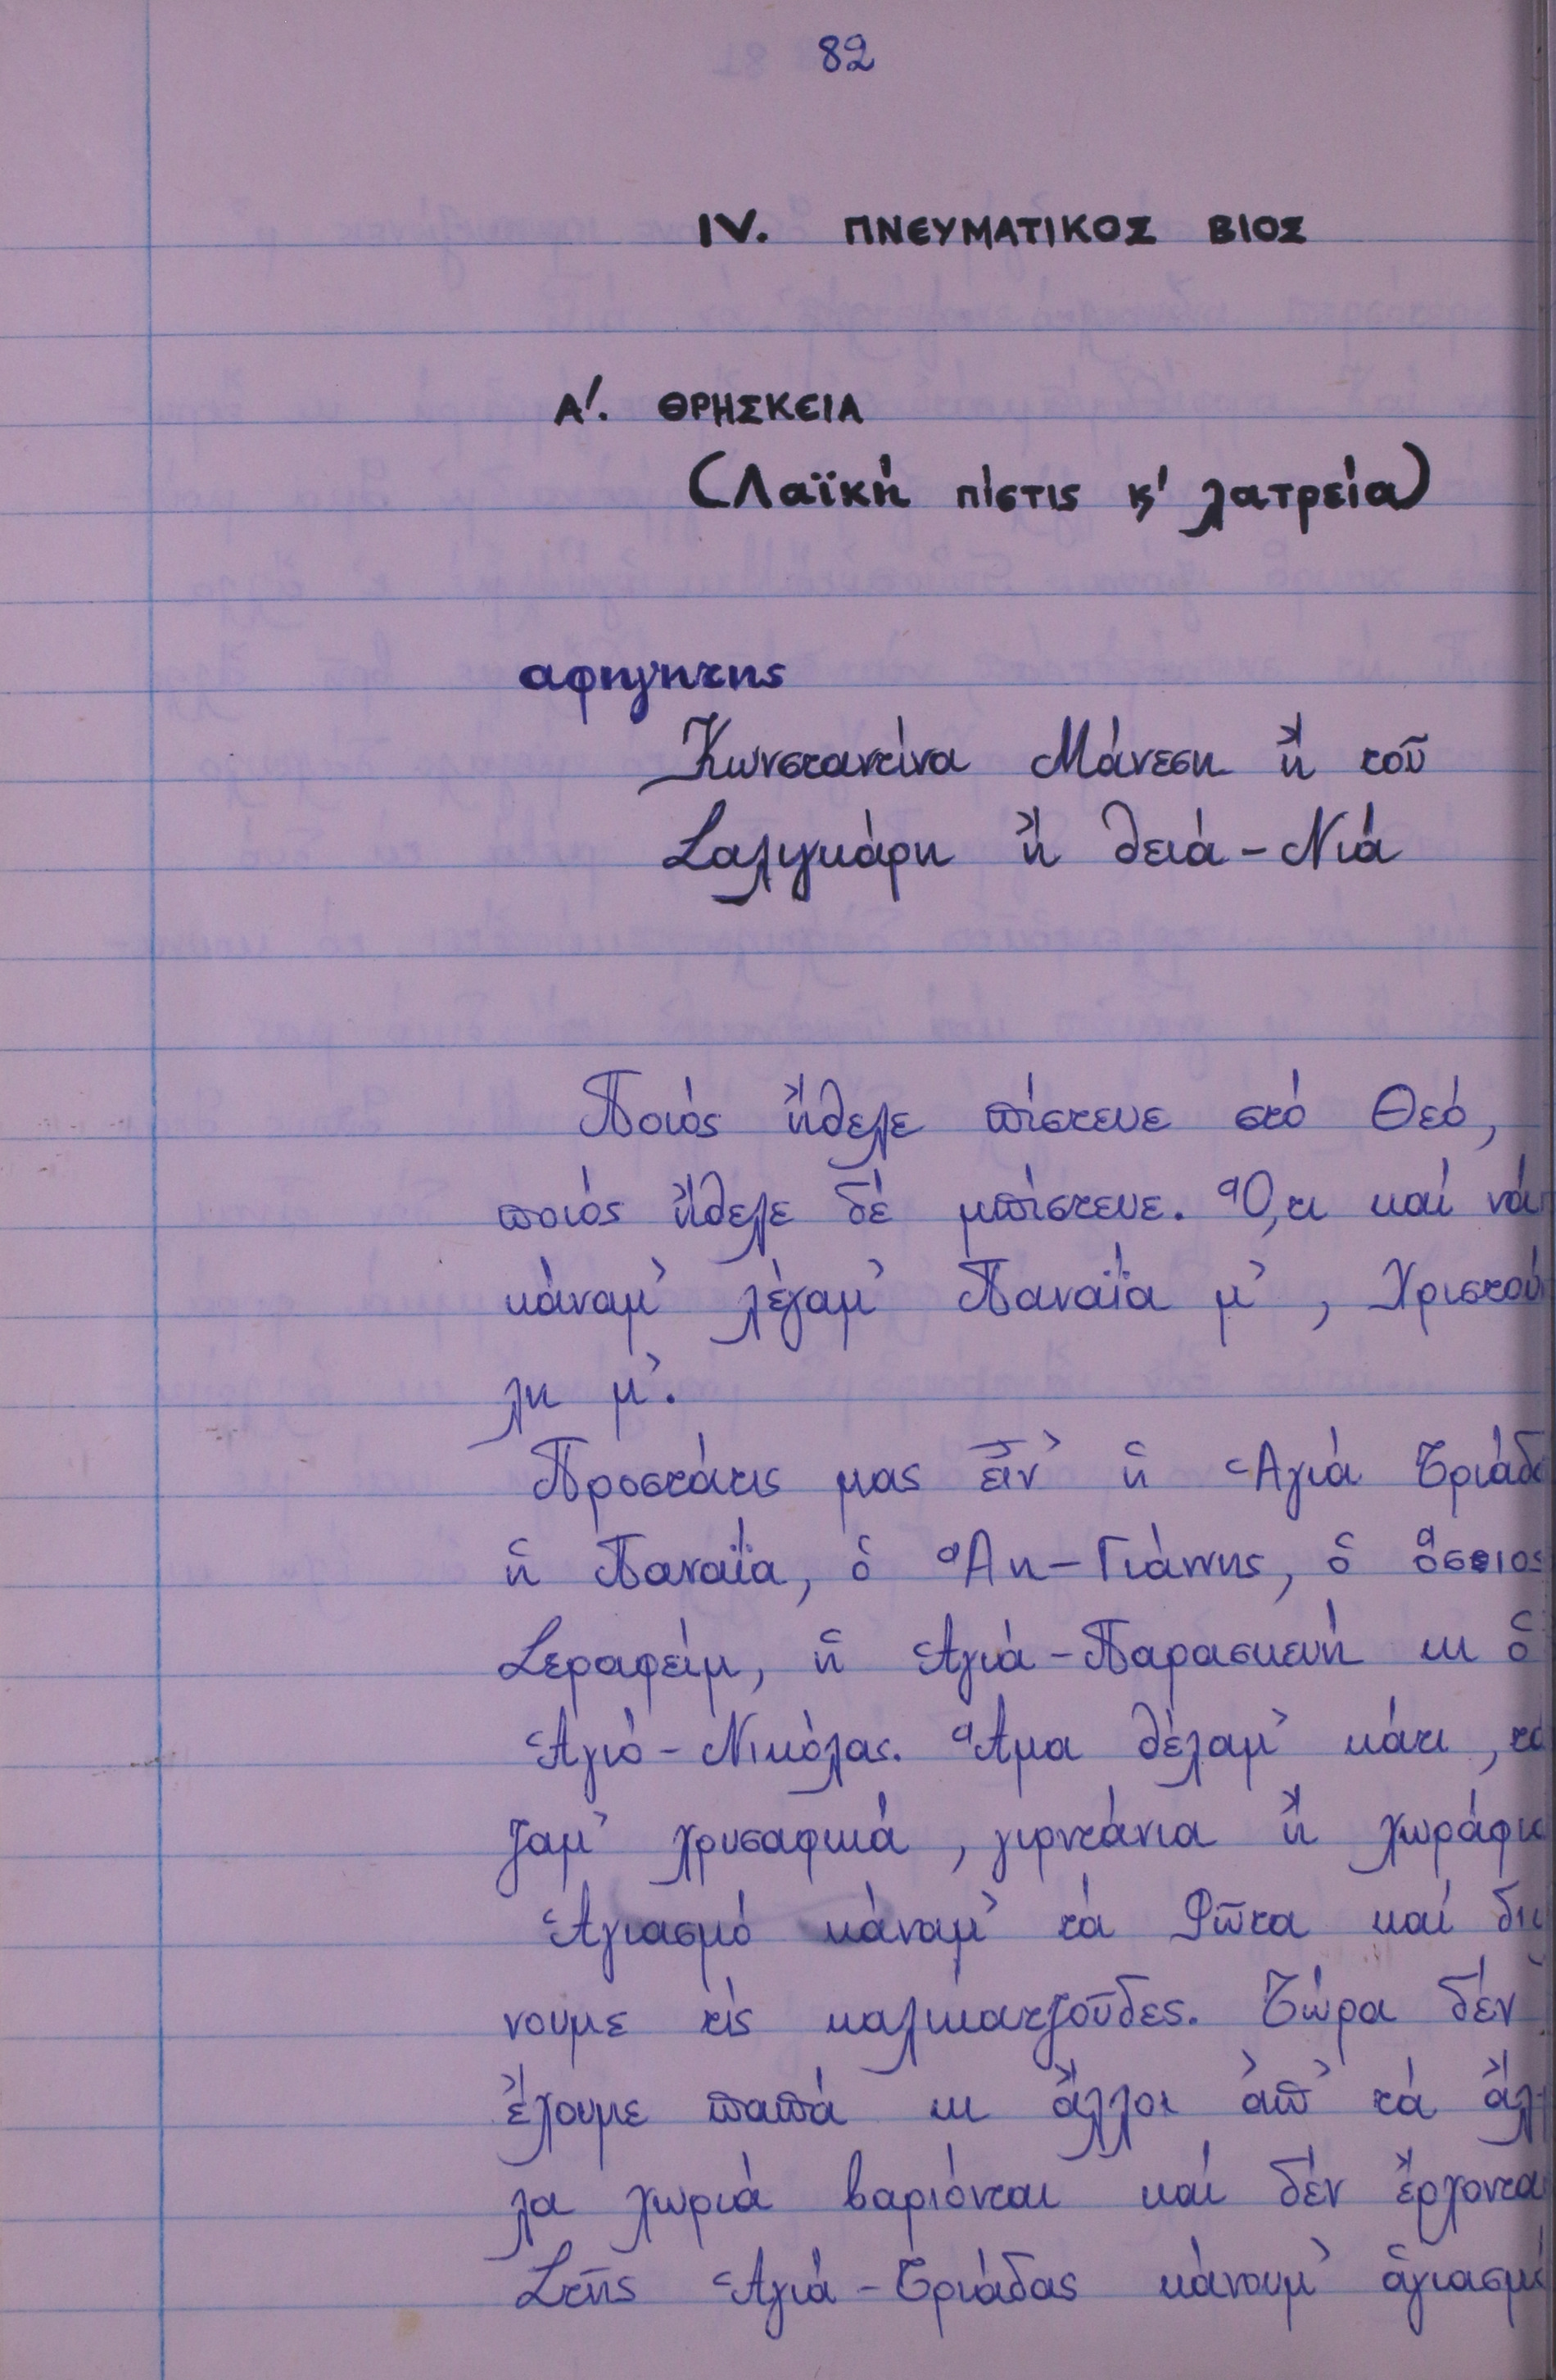 82
IV. ΠΝΕΥΜΑΤΙΚΟΣ ΒΙΟΣ
Α'. ΘΡΗΣΚΕΙΑ
(Λαϊκή πίστις κ' λατρεία)
αφηγητης
Κωνσταντίνα Μάνεση ἤ τοῦ
Σαλιγκάρη ἤ θειά-Νιά
Ποιός ἤθελε πίστευε στό Θεό,
ποιός ἤθελε δέ μπίστευε. Ὅ,τι καί νά
κάναμ' λέγαμ' Παναΐα μ', Χριστού
λη μ'.
Προστάτις μας εἶν' ἡ Ἁγιά Τριάδα
ἡ Παναΐα, ὁ Ἅη-Γιάννης, ὁ ὅσιος
Σεραφείμ, ἡ Ἁγιά-Παρασκευή κι ὁ
Ἁγιό-Νικόλας. Ἅμα θέλαμ' κάτι, τά
ζαμ' χρυσαφικά, γιρντάνια ἤ χωράφια
Ἁγιασμό κάναμ' τά Φῶτα καί διώ
νουμε τίς καλικατζοῦδες. Τώρα δέν
ἔχουμε παπά κι ἄλλοι ἀπ' τά ἄλ-
λα χωριά βαριόνται καί δέν ἔρχονται
Στῆς Ἁγιά-Τριάδας κάνουμ' ἁγιασμό